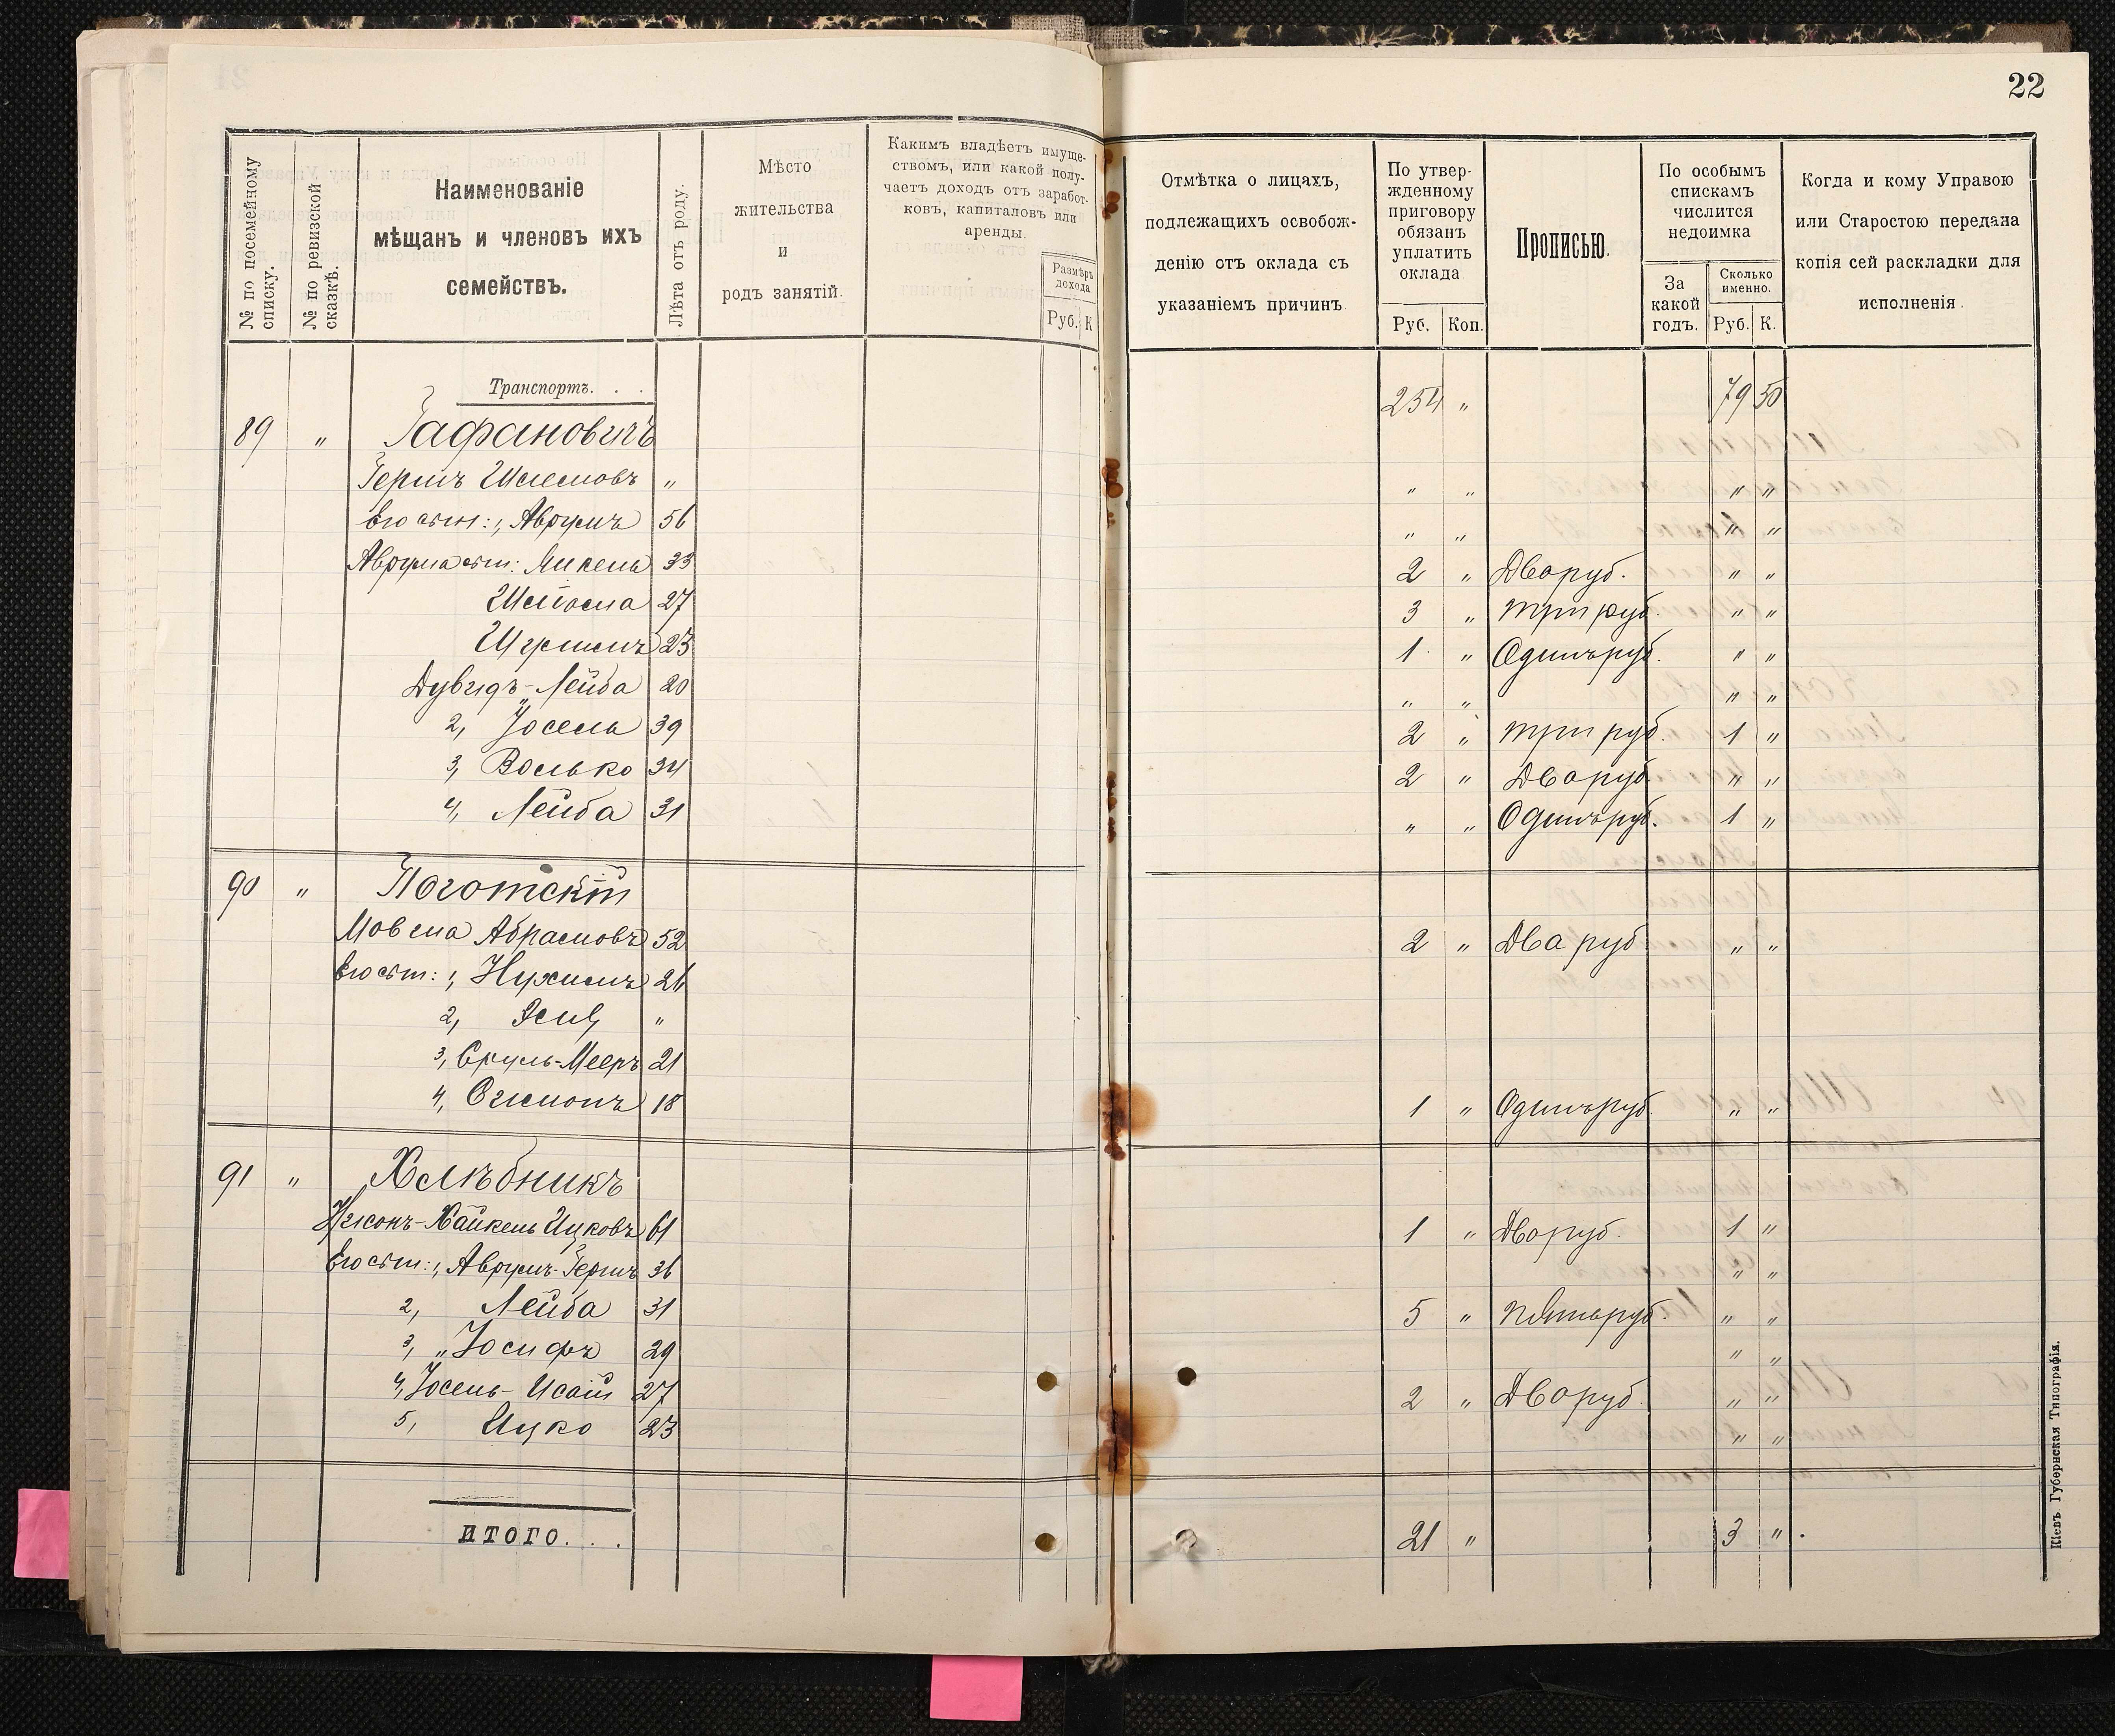 22
№ по посемейному списку.
№ по ревизской сказкѣ.
Наименованіе
мѣщанъ и членовъ ихъ
семействъ.
Лѣта отъ роду.
Мѣсто
жительства
и
родъ занятій.
Какимъ владѣетъ имуще-
ствомъ, или какой полу-
чаетъ доходъ отъ заработ-
ковъ, капиталовъ или
аренды.
Размѣръ
дохода
Руб. К
Отмѣтка о лицахъ,
подлежащихъ освобож-
денію отъ оклада съ
указаніемъ причинъ.
По утвер-
жденному
приговору
обязанъ
уплатить
оклада
Руб. Коп.
Прописью.
По особымъ
спискамъ
числится
недоимка
За
какой
годъ.
Сколько
именно.
Руб. К.
Когда и кому Управою
или Старостою передана
копія сей раскладки для
исполненія.
Транспортъ. . . 254 „ 79 50
89 „ Гафановичъ
Гершъ Шлемовъ „ „ „ „ „
Его сын: 1, Аврумъ 56 „ „ „ „
Аврума сын: Микель 33 2 „ Два руб. „ „
Шлёма 27 3 „ три руб. „ „
23 1 „ Одинъ руб. „ „
Дувидъ-Лейба 20 „ „ „ „
2, Іосель 39 2 „ три руб. 1 „
3, Волько 34 2 „ Два руб. „ „
4, Лейба 31 „ „ Одинъ руб. 1 „
90 „ Поготскій
Мовша Абрамовъ 52 2 „ Два руб. „ „
Его сын: 1, Нухимъ 26
2, „
3, Сруль-Мееръ 21
4, 18 1 „ Одинъ руб. „ „
91 „ Хлѣбникъ
Нисонъ-Хайкель Ицковъ 61 1 „ Два руб. 1 „
Его сын: 1, Аврумъ-Гершъ 36 „ „
2, Лейба 31 5 „ пять руб. „ „
3, „Іосифъ 29 „ „
4, Іосель-Исай 27 2 „ Два руб. „ „
5, Ицко 23 „ „
ИТОГО. . . 21 „ 3 „ .
Кіевъ Губернская Типографія.